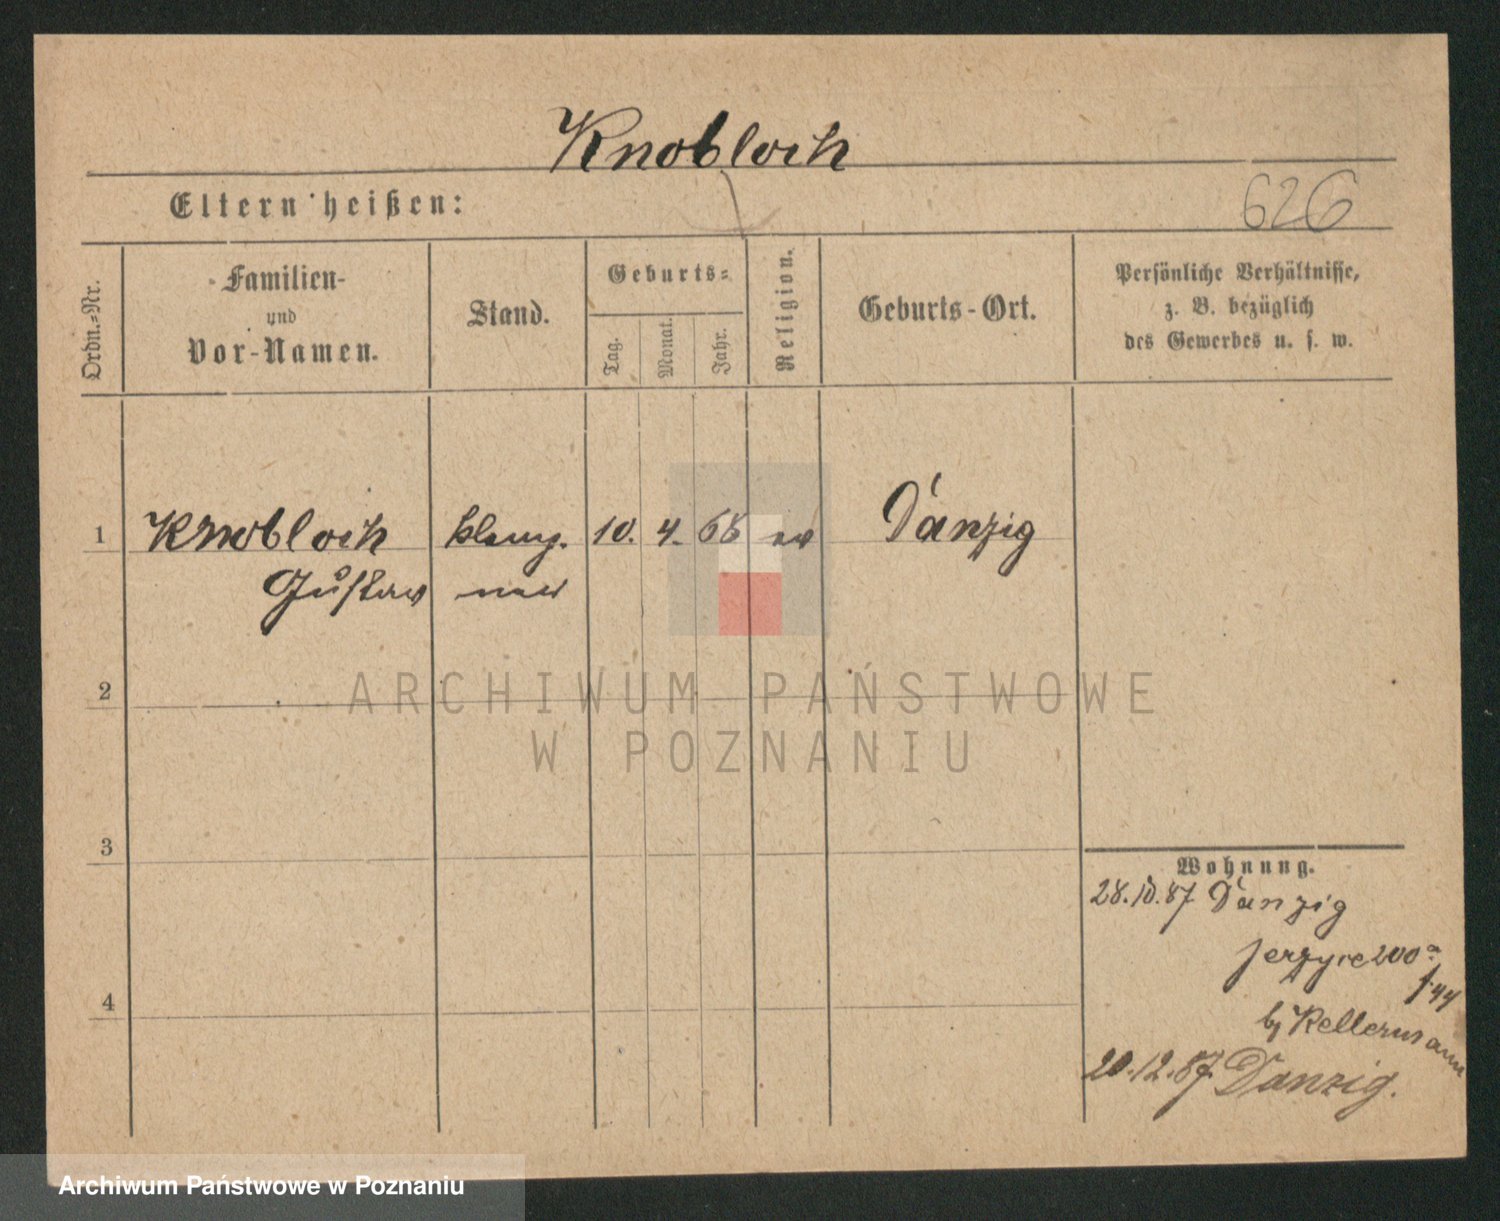 Knobloch
Eltern heißen:
626
Ordn.=Nr.
Familien-
und
Vor-Namen.
Stand.
Geburts=
Tag.
Monat.
Jahr.
Religion.
Geburts-Ort.
Persönliche Verhältnisse,
z. B. bezüglich
des Gewerbes u. s. w.
1
Knobloch
Gustav
Klemp.
ner
10.
4.
68
ev
Danzig
2
ARCHIWUM PAŃSTWOWE
W POZNANIU
3
4
Wohnung.
28.10.87 Danzig
200a
44
Kellermann
20.12.87 Danzig.
Archiwum Państwowe w Poznaniu